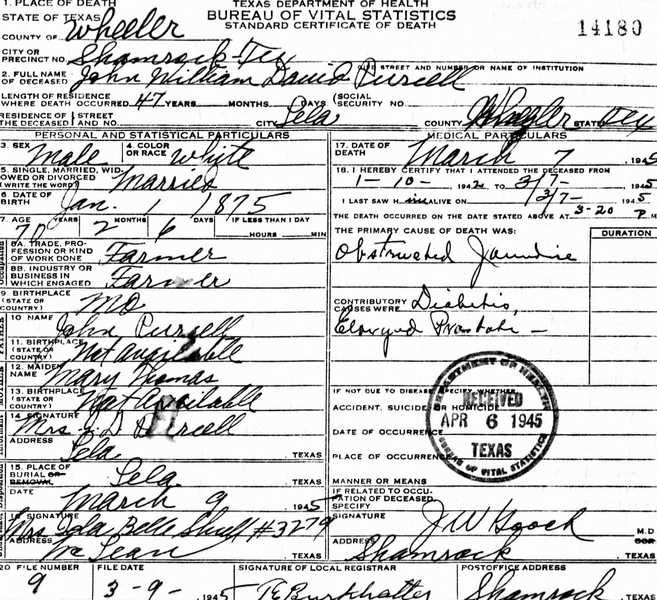 1. PLACE OF DEATH
STATE OF TEXAS
TEXAS DEPARTMENT OF HEALTH
BUREAU OF VITAL STATISTICS
STANDARD CERTIFICATE OF DEATH
14180
COUNTY OF Wheeler
CITY OR PRECINCT NO. Shamrock Tex
GIVE STREET AND NUMBER OR NAME OF INSTITUTION
2. FULL NAME OF DECEASED John William David Purcell
LENGTH OF RESIDENCE WHERE DEATH OCCURRED 47 YEARS MONTHS DAYS (SOCIAL SECURITY NO
RESIDENCE OF THE DECEASED { STREET AND NO. CITY Lela COUNTY Wheeler STATE Tex
PERSONAL AND STATISTICAL PARTICULARS
3. SEX Male 4. COLOR OR RACE White
5. SINGLE, MARRIED, WIDOWED OR DIVORCED (WRITE THE WORD) Married
6. DATE OF BIRTH Jan. 1 1875
7. AGE 70 YEARS 2 MONTHS 6 DAYS IF LESS THAN 1 DAY HOURS MIN
8A. TRADE, PROFESSION OR KIND OF WORK DONE Farmer
8B. INDUSTRY OR BUSINESS IN WHICH ENGAGED Farmer
9. BIRTHPLACE (STATE OR COUNTRY) MO
10 NAME John Purcell
11. BIRTHPLACE (STATE OR COUNTRY) Not available
12. MAIDEN NAME Mary Thomas
13. BIRTHPLACE (STATE OR COUNTRY) Not Available
14. SIGNATURE Mrs. J. D. Purcell
ADDRESS Lela TEXAS
15. PLACE OF BURIAL OR REMOVAL Lela TEXAS
DATE March 9 1945
SIGNATURE Mrs Iola Belle #3279
ADDRESS McLean TEXAS
MEDICAL PARTICULARS
17. DATE OF DEATH March 7 1945
18. I HEREBY CERTIFY THAT I ATTENDED THE DECEASED FROM
1-10- 1942 TO 3/7- 1945
I LAST SAW him ALIVE ON 3/7- 1945
THE DEATH OCCURRED ON THE DATE STATED ABOVE AT 3-20 P M
THE PRIMARY CAUSE OF DEATH WAS: DURATION
Obstructed Jaundice
CONTRIBUTORY CAUSES WERE Diabetis,
Prostate —
IF NOT DUE TO DISEASE, SPECIFY WHETHER
ACCIDENT, SUICIDE OR HOMICIDE
DATE OF OCCURRENCE
PLACE OF OCCURRENCE
MANNER OR MEANS
DEPARTMENT OF HEALTH
RECEIVED
APR 6 1945
TEXAS
BUREAU OF VITAL STATISTICS
IF RELATED TO OCCUPATION OF DECEASED, SPECIFY
SIGNATURE J W Gooch M.D
ADDRESS Shamrock TEXAS
20 FILE NUMBER FILE DATE SIGNATURE OF LOCAL REGISTRAR POSTOFFICE ADDRESS
9 3-9- 1945 TE Burkhalter Shamrock TEXAS